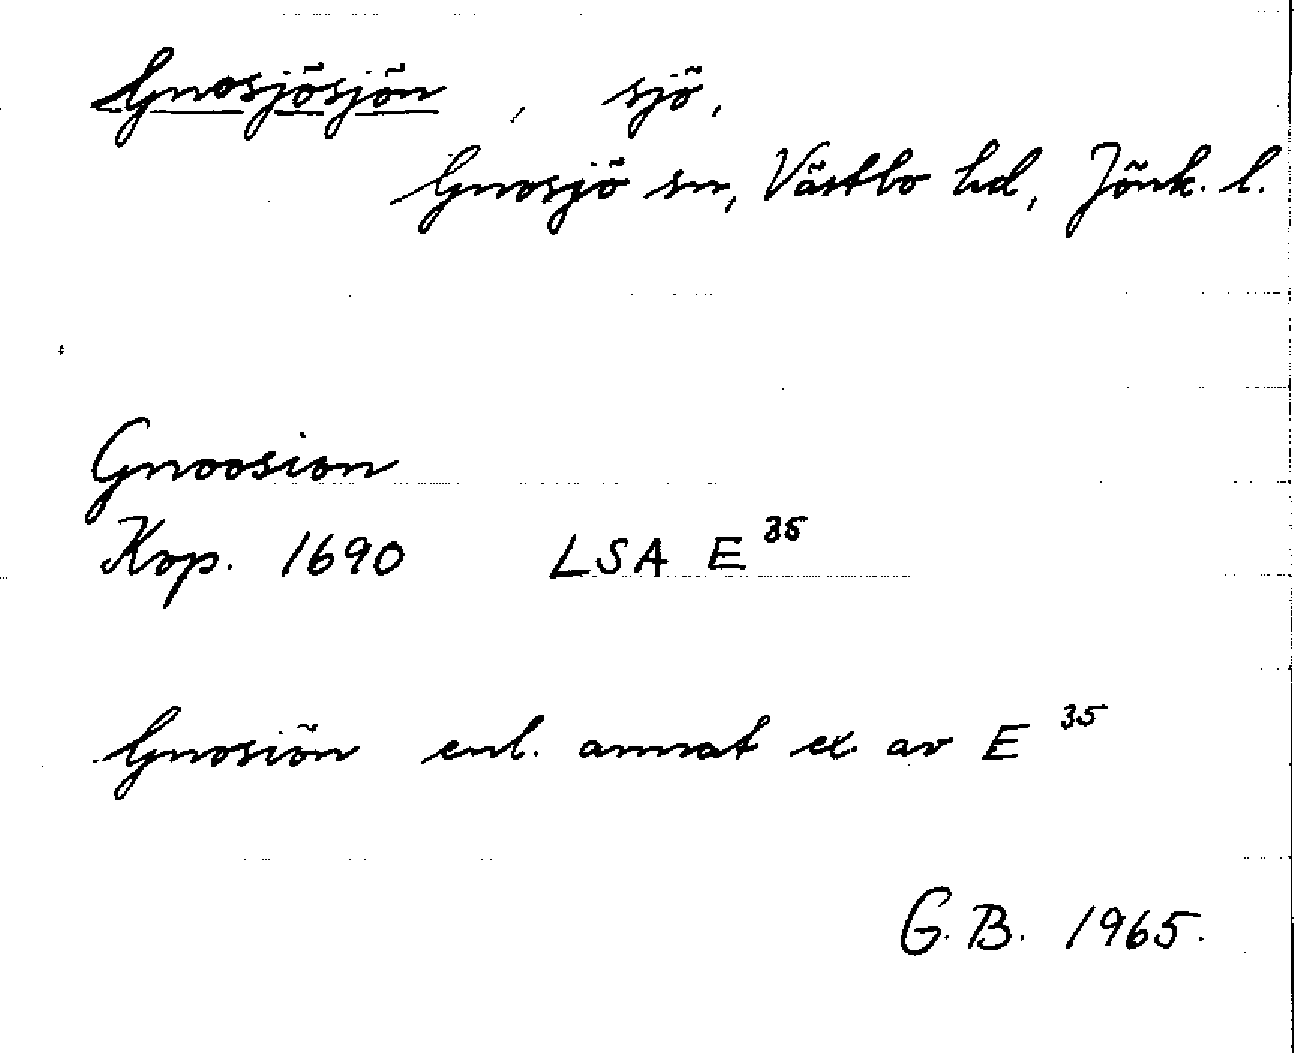 Gnosjösjön, sjö,
Gnosjö sn, Västbo hd, Jönk. l.
Gnoosion
Kop. 1690 LSA E 35
Gnosiön enl. annat ex av E 35
G. B. 1965.